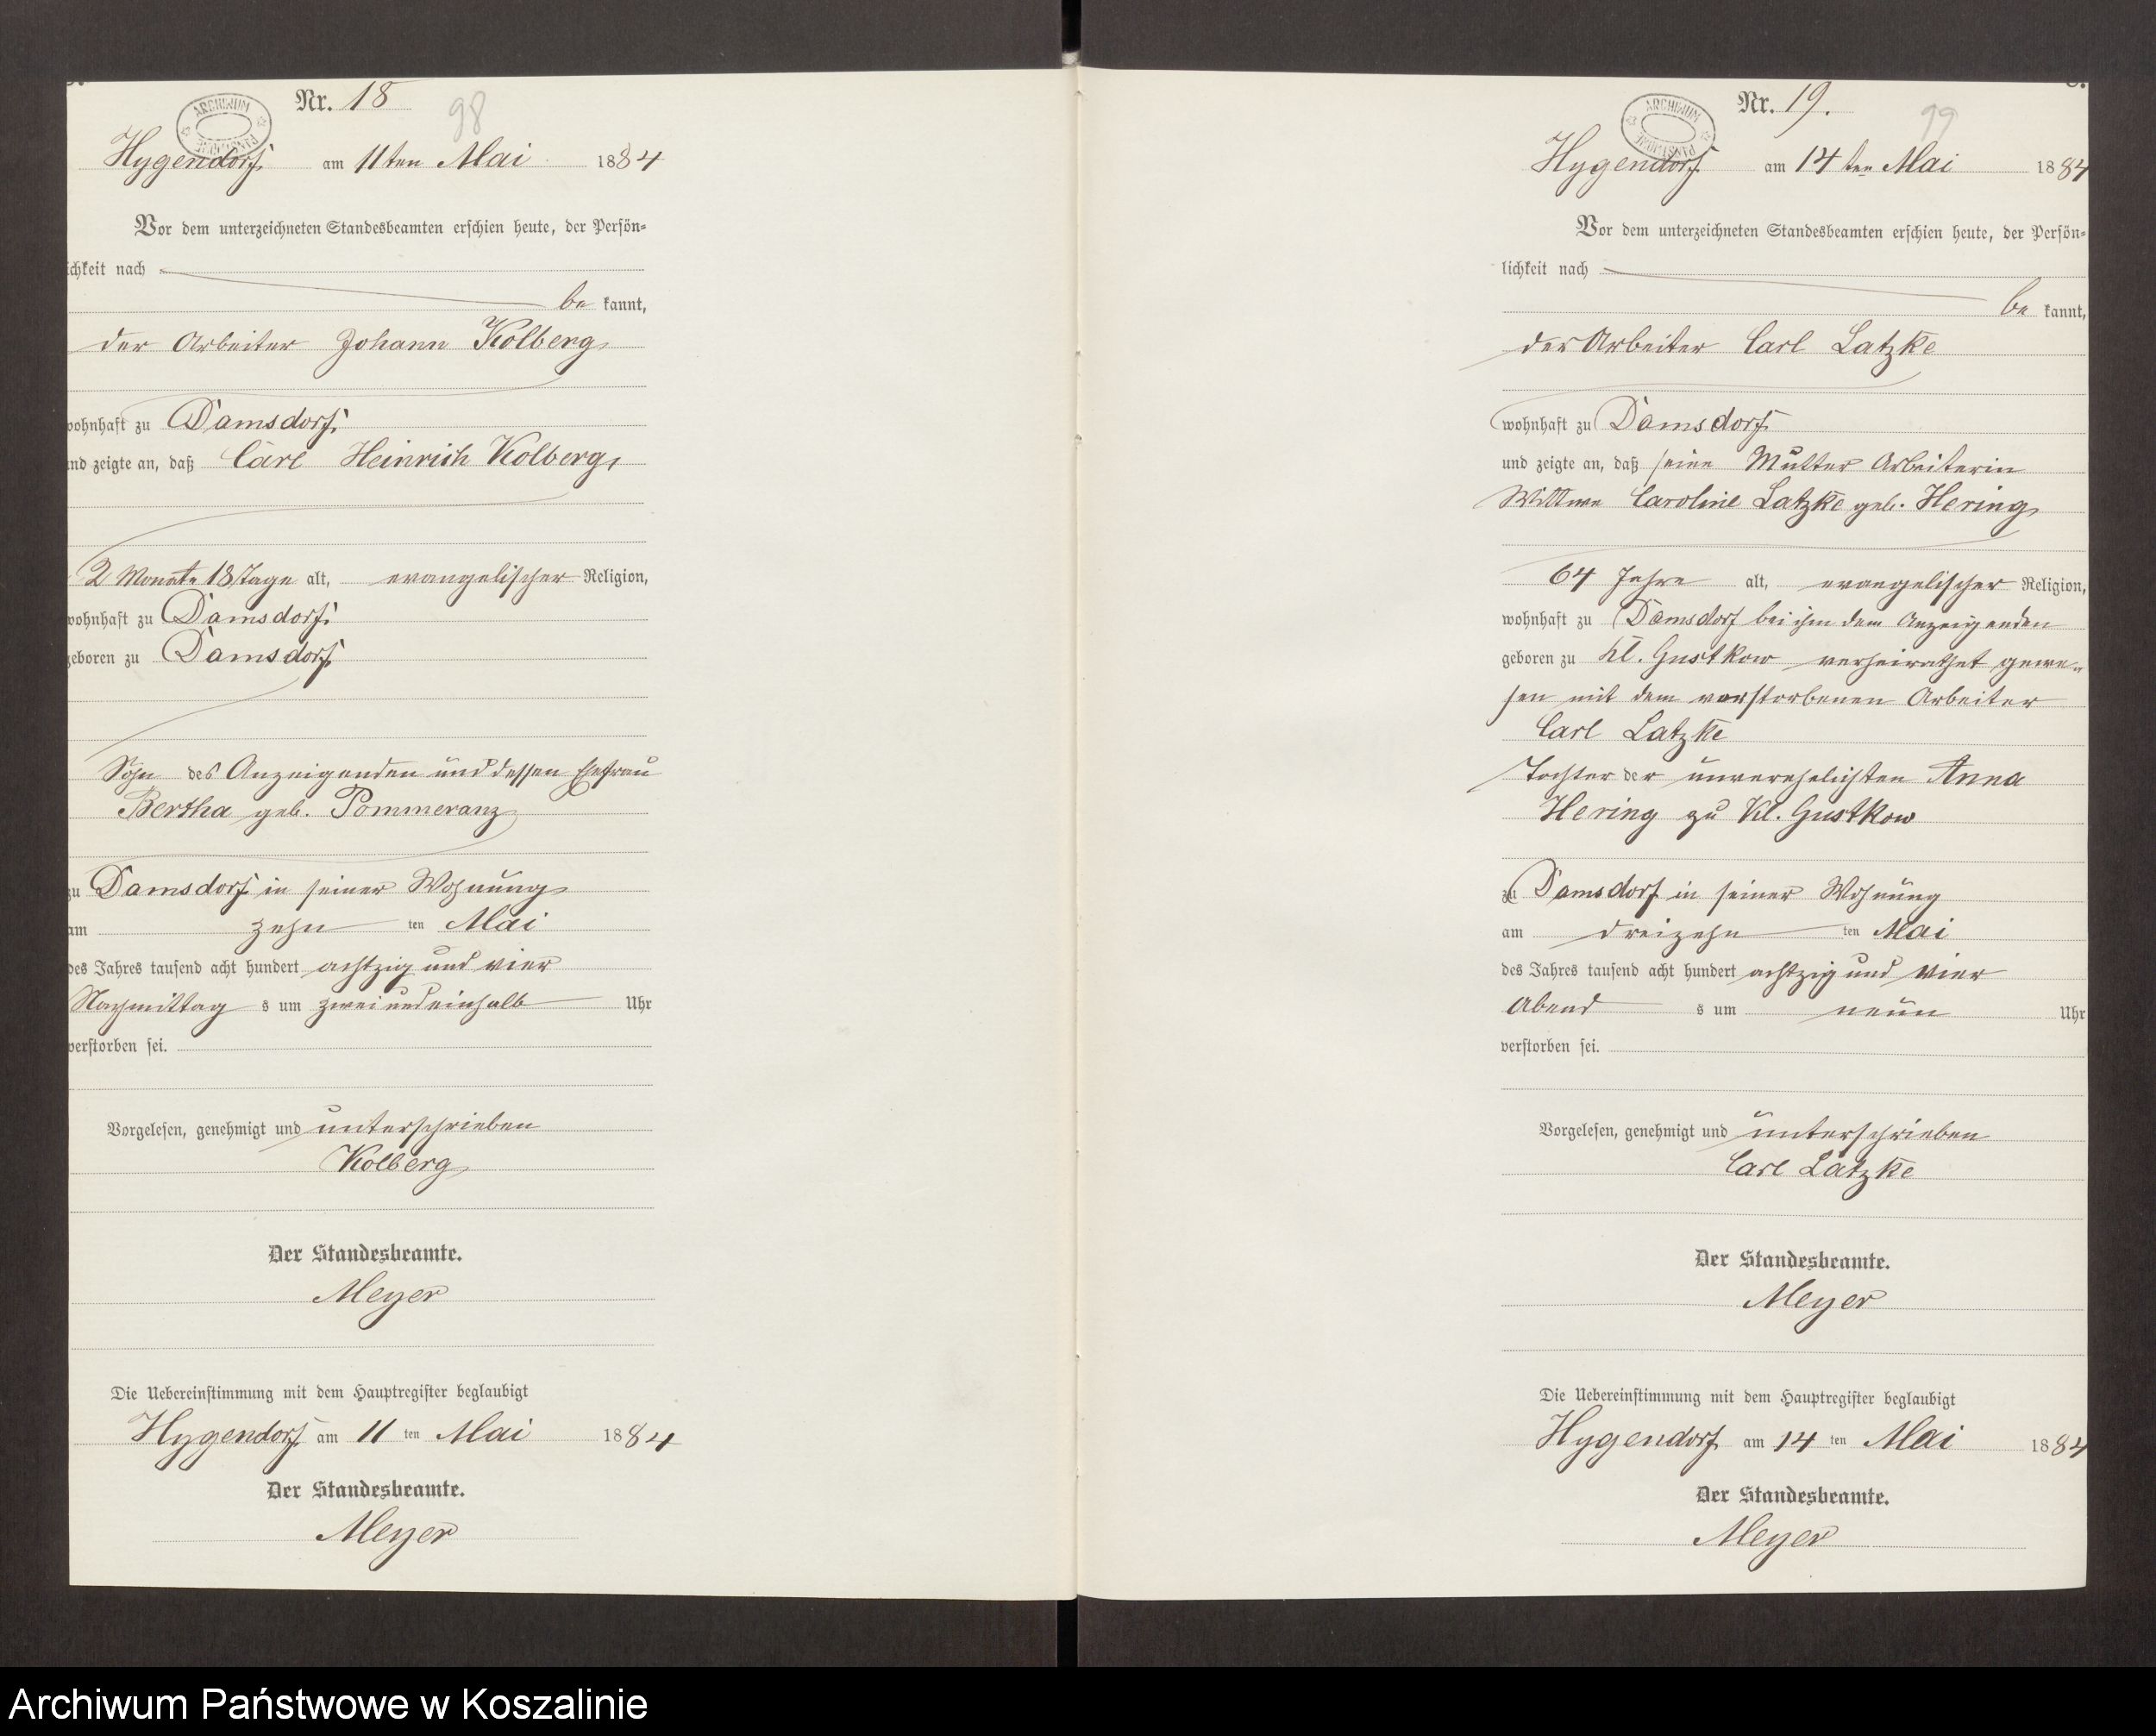 Nr. 18
98
ARCHIWUM PAŃSTWOWE
Hygendorf am 11ten Mai 1884
Vor dem unterzeichneten Standesbeamten erschien heute, der Persön-
ichkeit nach
be kannt,
der Arbeiter Johann Kolberg
wohnhaft zu Damsdorf
und zeigte an, daß Carl Heinrich Kolberg,
2 Monate 18 Tage alt, evangelischer Religion,
wohnhaft zu Damsdorf
geboren zu Damsdorf
Sohn des Anzeigenden und dessen Ehefrau
Bertha geb. Pommeranz
zu Damsdorf in seiner Wohnung
am zehn ten Mai
des Jahres tausend acht hundert achtzig und vier
Nachmittag s um zwei und einhalb Uhr
verstorben sei.
Vorgelesen, genehmigt und unterschrieben
Kolberg
Der Standesbeamte.
Meyer
Die Uebereinstimmung mit dem Hauptregister beglaubigt
Hygendorf am 11 ten Mai 1884
Der Standesbeamte.
Meyer
Nr. 19.
99
ARCHIWUM PAŃSTWOWE
Hygendorf am 14ten Mai 1884
Vor dem unterzeichneten Standesbeamten erschien heute, der Persön-
lichkeit nach
be kannt,
der Arbeiter Carl Latzke
wohnhaft zu Damsdorf
und zeigte an, daß seine Mutter Arbeiterin
Wittwe Caroline Latzke geb. Hering
64 Jahre alt, evangelischer Religion,
wohnhaft zu Damsdorf bei ihm dem Anzeigenden
geboren zu Kl. Gustkow verheirathet gewe-
sen mit dem verstorbenen Arbeiter
Carl Latzke
Tochter der unverehelichten Anna
Hering zu Kl. Gustkow
zu Damsdorf in seiner Wohnung
am dreizehn ten Mai
des Jahres tausend acht hundert achtzig und vier
Abend s um neun Uhr
verstorben sei.
Vorgelesen, genehmigt und unterschrieben
Carl Latzke
Der Standesbeamte.
Meyer
Die Uebereinstimmung mit dem Hauptregister beglaubigt
Hygendorf am 14 ten Mai 1884
Der Standesbeamte.
Meyer
Archiwum Państwowe w Koszalinie